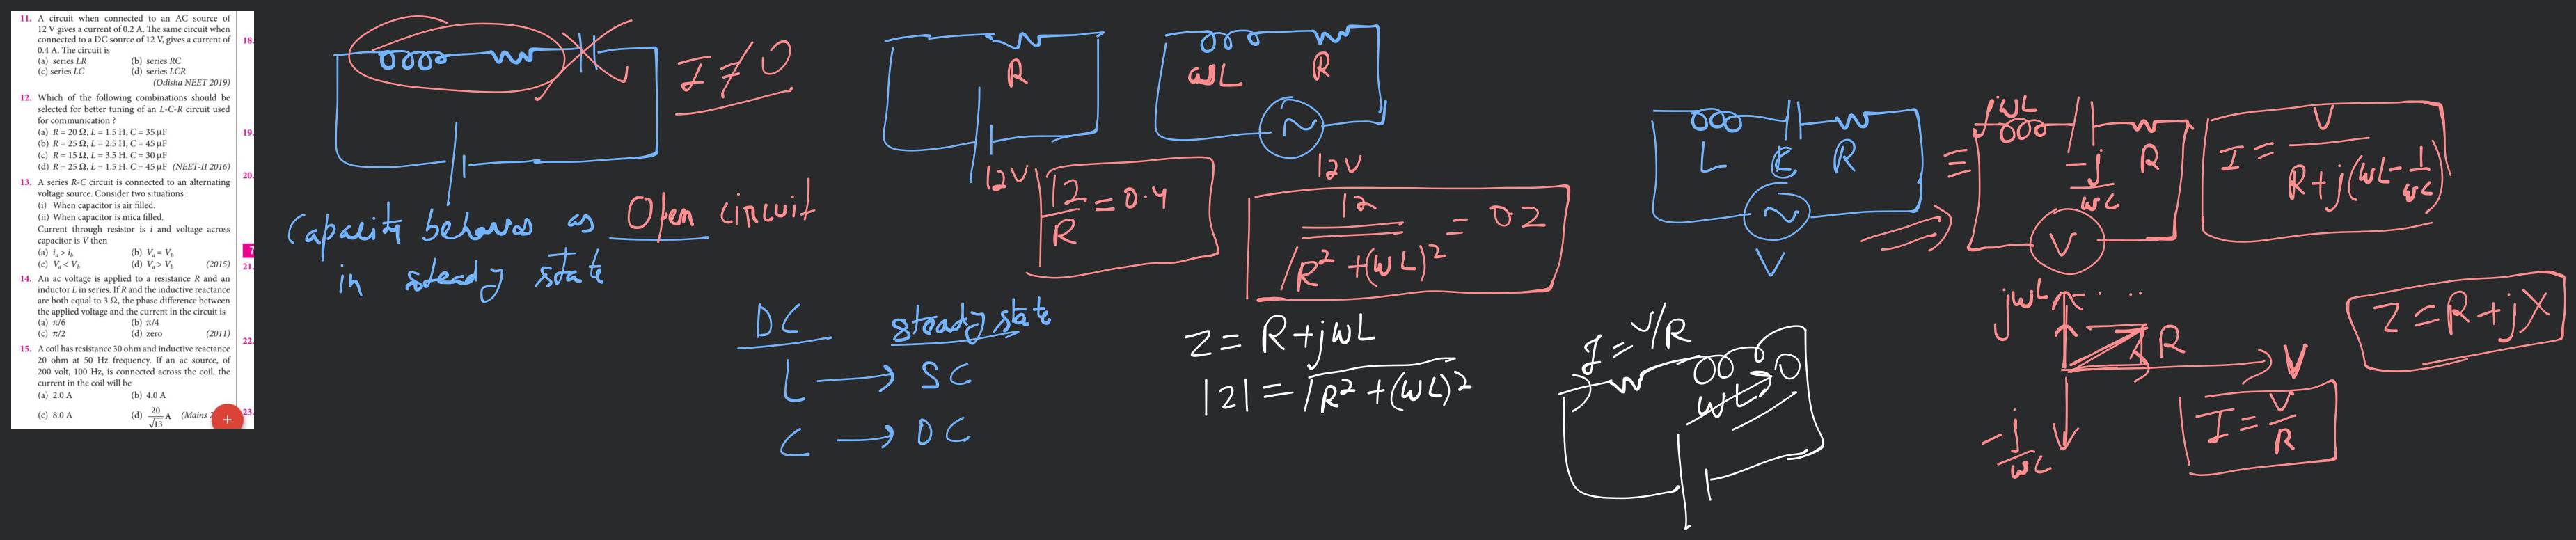 11. A circuit when connected to an AC source of
12 V gives a current of 0.2 A. The same circuit when
connected to a DC source of 12 V, gives a current of
0.4 A. The circuit is
(a) series LR (b) series RC
(c) series LC (d) series LCR
(Odisha NEET 2019)
12. Which of the following combinations should be
selected for better tuning of an L-C-R circuit used
for communication ?
(a) R = 20 Ω, L = 1.5 H, C = 35 μF
(b) R = 25 Ω, L = 2.5 H, C = 45 μF
(c) R = 15 Ω, L = 3.5 H, C = 30 μF
(d) R = 25 Ω, L = 1.5 H, C = 45 μF (NEET-II 2016)
13. A series R-C circuit is connected to an alternating
voltage source. Consider two situations :
(i) When capacitor is air filled.
(ii) When capacitor is mica filled.
Current through resistor is i and voltage across
capacitor is V then
(a) i_a > i_b (b) V_a = V_b
(c) V_a < V_b (d) V_a > V_b (2015)
14. An ac voltage is applied to a resistance R and an
inductor L in series. If R and the inductive reactance
are both equal to 3 Ω, the phase difference between
the applied voltage and the current in the circuit is
(a) π/6 (b) π/4
(c) π/2 (d) zero (2011)
15. A coil has resistance 30 ohm and inductive reactance
20 ohm at 50 Hz frequency. If an ac source, of
200 volt, 100 Hz, is connected across the coil, the
current in the coil will be
(a) 2.0 A (b) 4.0 A
(c) 8.0 A (d) 20/√13 A (Mains
18.
19.
20.
7
21.
22.
23.
I ≠ 0
Capacity behaves as Open circuit
in steady state
R
12V
12/R = 0.4
ωL R
12V
12/√R² + (ωL)² = 0.2
DC steady state
L → SC
C → OC
Z = R + jωL
|Z| = √R² + (ωL)²
I = V/R
ωL → 0
L C R
V
≡
jωL
-j/ωC R
V
I = V/R + j(ωL - 1/ωC)
jωL
R
V
-j/ωC
I = V/R
Z = R + jX